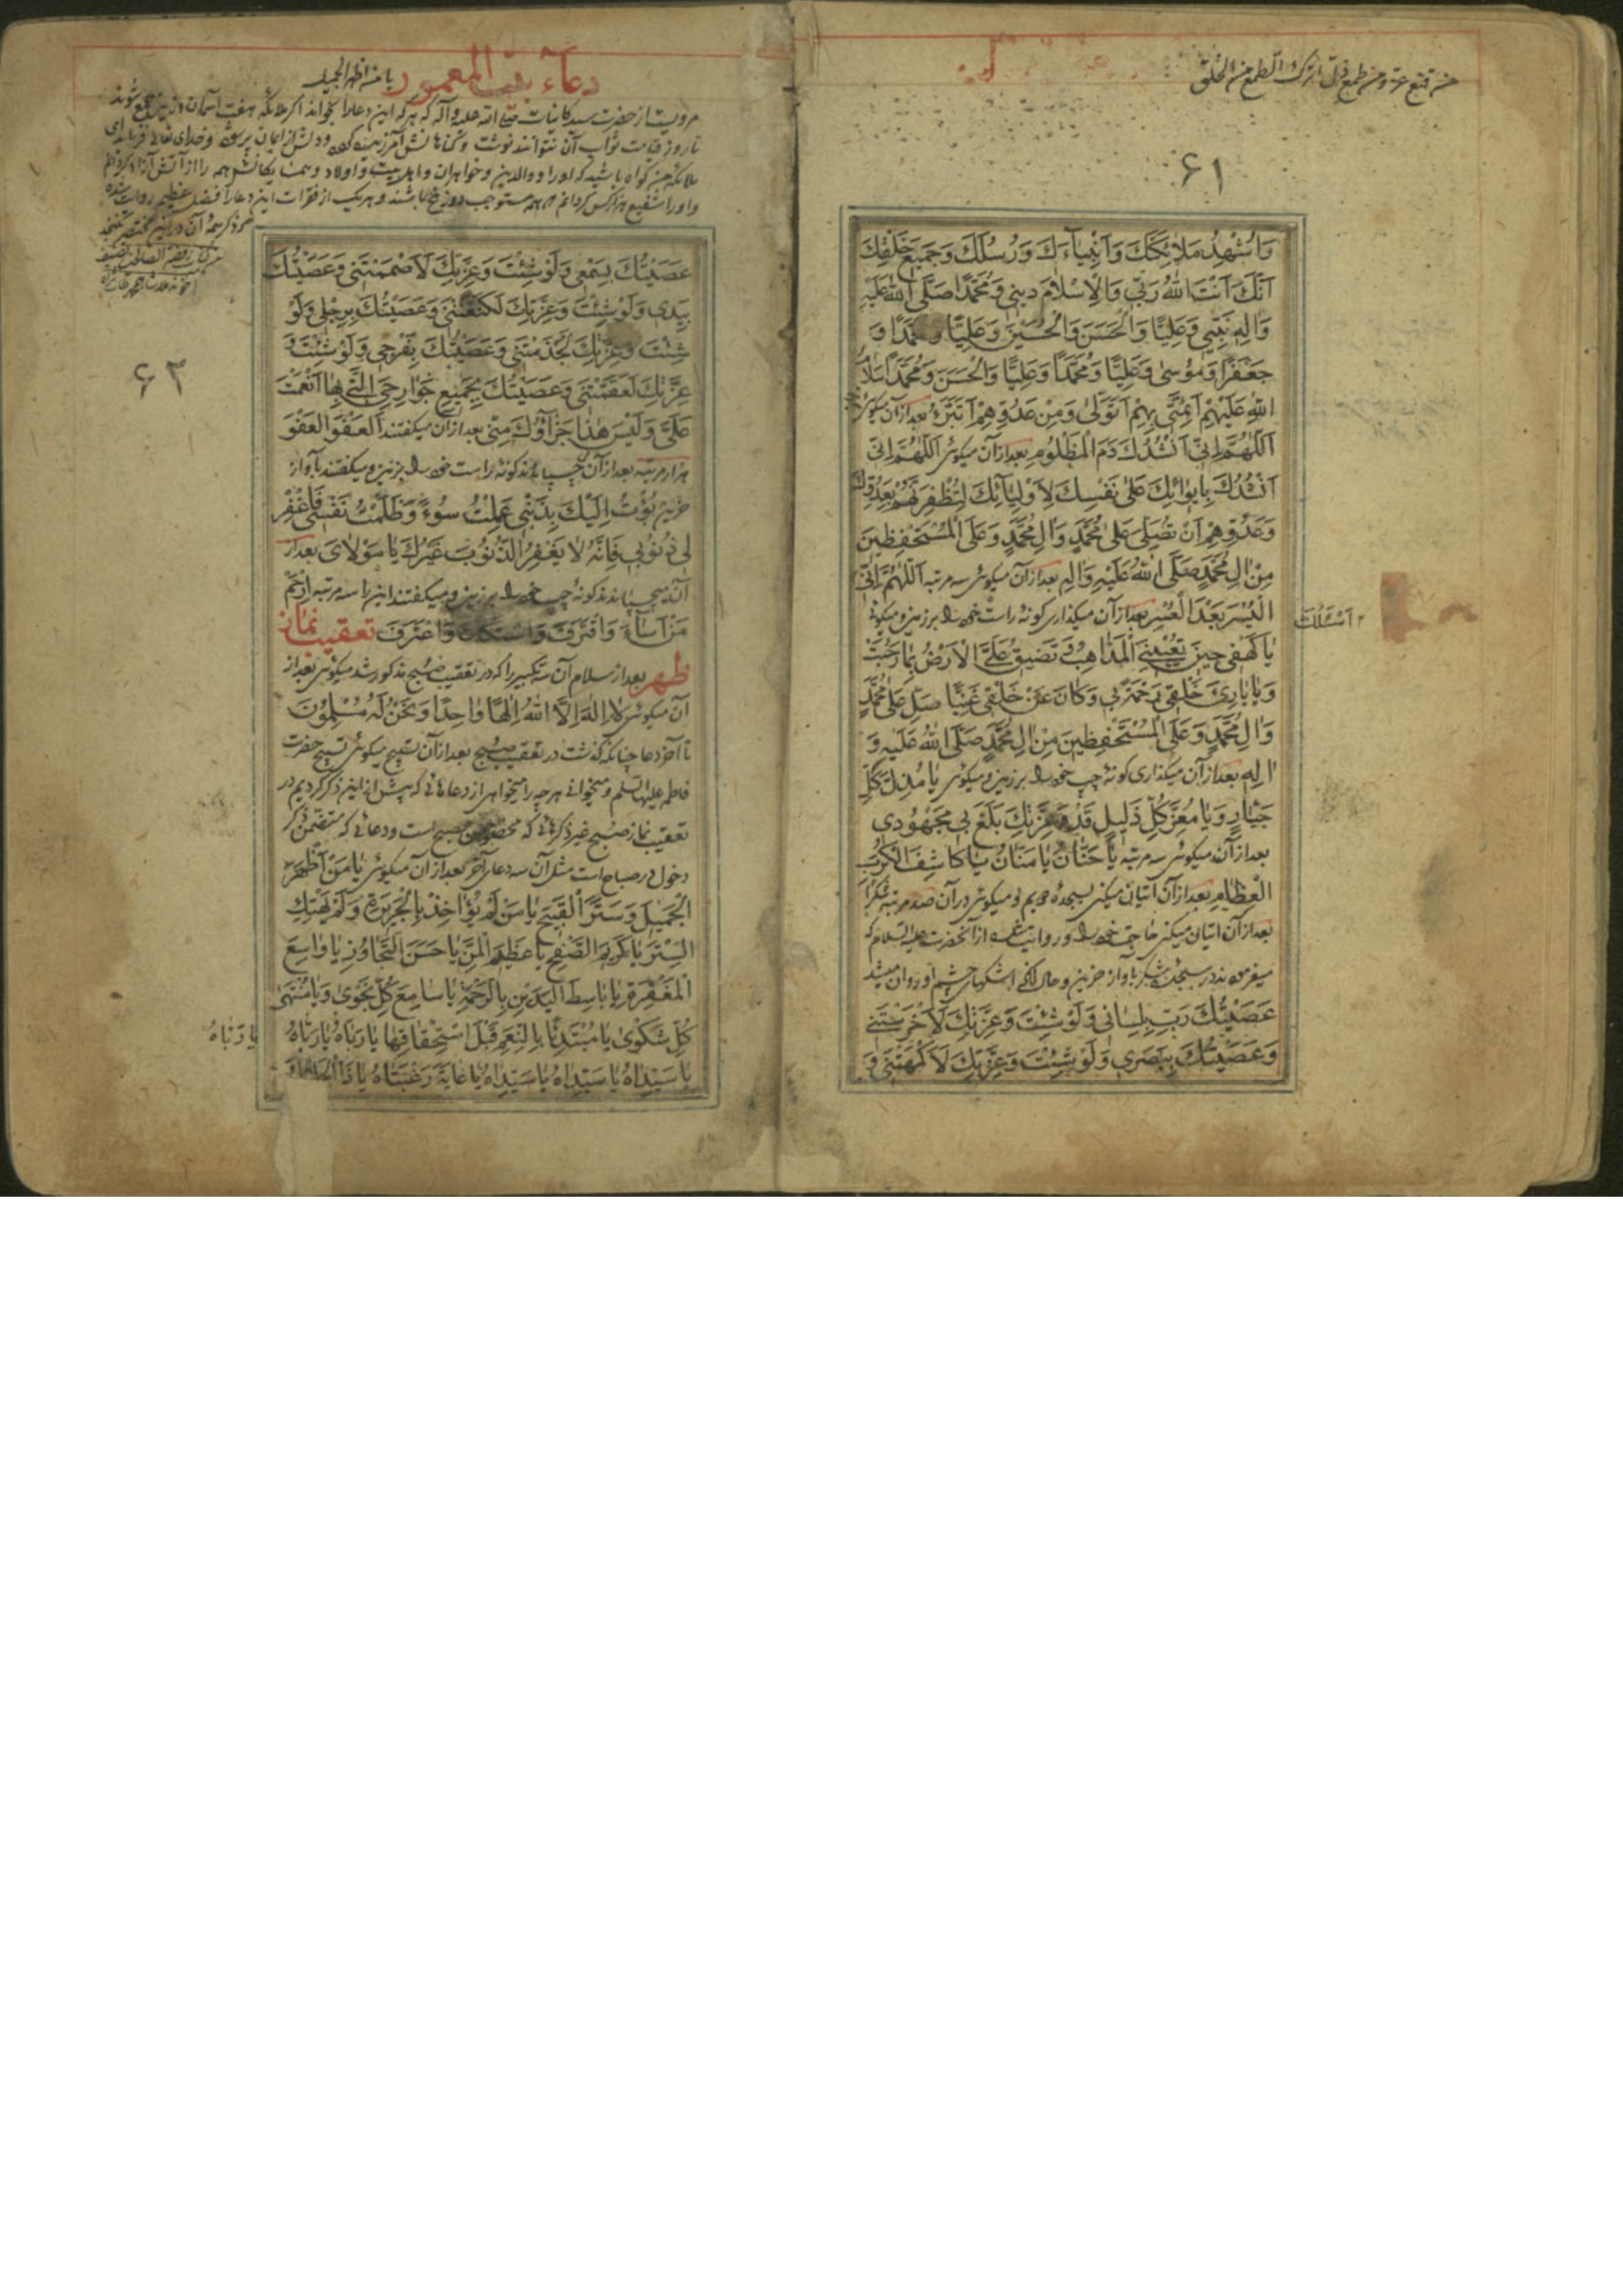 من قنع عز و من طمع ذل اترک الطمع من الخلق
۶۱
وَاُشْهِدُ مَلٰائِكَتَكَ وَاَنْبِيٰآءَكَ وَرُسُلَكَ وَجَمِيعَ خَلْقِكَ
اَنَّكَ اَنْتَ اللّٰهُ رَبّي وَالْاِسْلٰامَ ديني وَمُحَمَّدًا صَلَّى اللّٰهُ عَلَيْهِ
وَاٰلِهِ نَبِيّي وَعَلِيًّا وَالْحَسَنَ وَالْحُسَيْنَ وَعَلِيًّا وَمُحَمَّدًا وَ
جَعْفَرًا وَمُوسىٰ وَعَلِيًّا وَمُحَمَّدًا وَعَلِيًّا وَالْحَسَنَ وَمُحَمَّدًا سَلٰامُ
اللّٰهِ عَلَيْهِمْ اَئِمَّتي بِهِمْ اَتَوَلّىٰ وَمِنْ عَدُوِّهِمْ اَتَبَرَّءُ بعد از آن میکوئی
اَللّٰهُمَّ اِنّي اَنْشُدُكَ دَمَ الْمَظْلُومِ بعد از آن میکوئی اَللّٰهُمَّ اِنّي
اَنْشُدُكَ بِاِيوٰائِكَ عَلىٰ نَفْسِكَ لِاَوْلِيٰآئِكَ لِتُظْفِرَنَّهُمْ بِعَدُوِّكَ
وَعَدُوِّهِمْ اَنْ تُصَلِّيَ عَلىٰ مُحَمَّدٍ وَاٰلِ مُحَمَّدٍ وَعَلَى الْمُسْتَحْفَظِينَ
مِنْ اٰلِ مُحَمَّدٍ صَلَّى اللّٰهُ عَلَيْهِ وَاٰلِهِ بعد از آن میکوئی سه مرتبه اَللّٰهُمَّ اِنّي
۲ اَسْئَلُكَ
الْيُسْرَ بَعْدَ الْعُسْرِ بعد از آن میکذاری کونهٔ راست خود را بر زمین و میکوئی
يٰا كَهْفي حِينَ تُعْيِينِي الْمَذٰاهِبُ وَتَضِيقُ عَلَيَّ الْاَرْضُ بِمٰا رَحُبَتْ
وَيٰا بٰارِئَ خَلْقي رَحْمَةً بي وَكٰانَ عَنْ خَلْقي غَنِيًّا صَلِّ عَلىٰ مُحَمَّدٍ
وَاٰلِ مُحَمَّدٍ وَعَلَى الْمُسْتَحْفَظِينَ مِنْ اٰلِ مُحَمَّدٍ صَلَّى اللّٰهُ عَلَيْهِ وَ
اٰلِهِ بعد از آن میکذاری کونهٔ چپ خود را بر زمین و میکوئی يٰا مُذِلَّ كُلِّ
جَبّٰارٍ وَيٰا مُعِزَّ كُلِّ ذَلِيلٍ قَدْ وَعِزَّتِكَ بَلَغَ بي مَجْهُودي
بعد از آن میکوئی سه مرتبه يٰا حَنّٰانُ يٰا مَنّٰانُ يٰا كٰاشِفَ الْكُرَبِ
الْعِظٰامِ بعد از آن اتیان میکنی بسجدهٔ دویم و میکوئی در آن صد مرتبه شُكْرًا
بعد از آن اتیان میکنی حاجت خود را و روایت شده از آنحضرت علیه السلام که
میفرموند در سجدهٔ شکر بآواز حزین و حال آنکه اشکهای چشم او روان میشد
عَصَيْتُكَ رَبِّ بِلِسٰاني وَلَوْ شِئْتَ وَعِزَّتِكَ لَاَخْرَسْتَنِي
وَعَصَيْتُكَ بِبَصَري وَلَوْ شِئْتَ وَعِزَّتِكَ لَاَكْمَهْتَنِي وَ
دعآء بیت المعمور یا من اظهر الجمیل
مرویست از حضرت سید کاینات صلی الله علیه و آله که هر که این دعا را بخواند اگر ملائکه هفت آسمان و زمین جمع شوند
تا روز قیامت ثواب آن نتوانند نوشت و کناهانش آمرزیده کردد و دلش از ایمان پر شود و خدای تعالی فرماید ای
ملائکه من کواه باشید که او را و والدین و خواهران و اهل بیت و اولاد و همسایکانش همه را از آتش آزاد کردانم
و او را شفیع هزار کس کردانم که همه مستوجب دوزخ باشند و هر یک از فقرات این دعا را فضل عظیم روایت شده
که ذکر همهٔ آن در این مختصر نکنجد
۶۲
عَصَيْتُكَ بِسَمْعي وَلَوْ شِئْتَ وَعِزَّتِكَ لَاَصْمَمْتَني وَعَصَيْتُكَ
بِيَدي وَلَوْ شِئْتَ وَعِزَّتِكَ لَكَنَّعْتَني وَعَصَيْتُكَ بِرِجْلي وَلَوْ
شِئْتَ وَعِزَّتِكَ لَجَذَمْتَني وَعَصَيْتُكَ بِفَرْجي وَلَوْ شِئْتَ وَ
عِزَّتِكَ لَعَقَمْتَني وَعَصَيْتُكَ بِجَمِيعِ جَوٰارِحِيَ الَّتي بِهٰا اَنْعَمْتَ
عَلَيَّ وَلَيْسَ هٰذٰا جَزٰآؤُكَ مِنّي بعد از آن میکفتند اَلْعَفْوَ الْعَفْوَ
هزار مرتبه بعد از آن چسپانیدند کونهٔ راست خود را بر زمین و میکفتند بآواز
حزین بُؤْتُ اِلَيْكَ بِذَنْبي عَمِلْتُ سُوءً وَظَلَمْتُ نَفْسي فَاغْفِرْ
لي ذُنُوبي فَاِنَّهُ لٰا يَغْفِرُ الذُّنُوبَ غَيْرُكَ يٰا مَوْلٰايَ بعد از
آن میچسپانیدند کونهٔ چپ خود را بر زمین و میکفتند این را سه مرتبه اِرْحَمْ
مَنْ اَسٰآءَ وَاقْتَرَفَ وَاسْتَكٰانَ وَاعْتَرَفَ تعقیب نماز
ظهر بعد از سلام آن سه تکبیر را که در تعقیب صبح مذکور شد میکوئی بعد از
آن میکوئی لٰا اِلٰهَ اِلَّا اللّٰهُ اِلٰهًا وٰاحِدًا وَنَحْنُ لَهُ مُسْلِمُونَ
تا آخر دعا چنانکه کذشت در تعقیب صبح بعد از آن تسبیح میکوئی تسبیح حضرت
فاطمه علیها السلم و میخوانی هر چه را میخواهی از دعاهائی که پیش از این ذکر کردیم در
تعقیب نماز صبح غیر ذکرهائی که مخصوص صبح است و دعائی که متضمن ذکر
دخول در صباح است مثل آن سه دعای آخر بعد از آن میکوئی يٰا مَنْ اَظْهَرَ
الْجَمِيلَ وَسَتَرَ الْقَبِيحَ يٰا مَنْ لَمْ يُؤٰاخِذْ بِالْجَرِيرَةِ وَلَمْ يَهْتِكِ
السِّتْرَ يٰا كَرِيمَ الصَّفْحِ يٰا عَظِيمَ الْمَنِّ يٰا حَسَنَ التَّجٰاوُزِ يٰا وٰاسِعَ
الْمَغْفِرَةِ يٰا بٰاسِطَ الْيَدَيْنِ بِالرَّحْمَةِ يٰا سٰامِعَ كُلِّ نَجْوىٰ وَيٰا مُنْتَهىٰ
كُلِّ شَكْوىٰ يٰا مُبْتَدِئًا بِالنِّعَمِ قَبْلَ اسْتِحْقٰاقِهٰا يٰا رَبّٰاهُ يٰا رَبّٰاهُ
يٰا رَبّٰاهُ
يٰا سَيِّدٰاهُ يٰا سَيِّدٰاهُ يٰا سَيِّدٰاهُ يٰا غٰايَةَ رَغْبَتٰاهُ يٰا ذَا